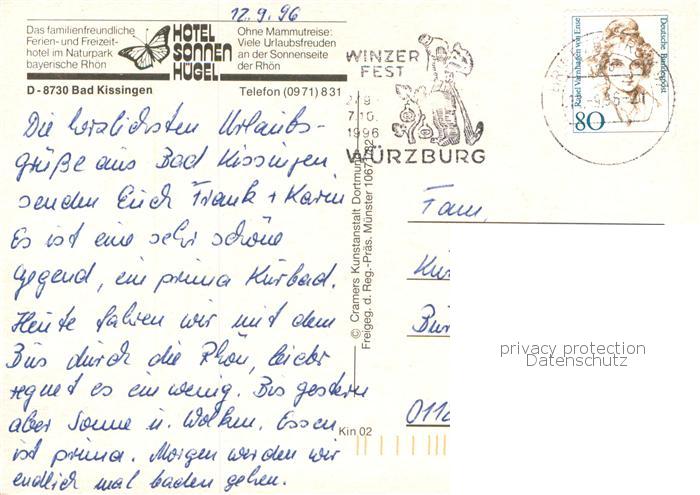 12.9.96
Das familienfreundliche
Ferien- und Freizeit-
hotel im Naturpark
bayerische Rhön
HOTEL
SONNEN
HÜGEL
Ohne Mammutreise:
Viele Urlaubsfreuden
an der Sonnenseite
der Rhön
D-8730 Bad Kissingen
Telefon (0971) 831
Die herzlichsten Urlaubs-
grüße aus Bad Kissingen
senden Euch Frank + Karin
Es ist eine sehr schöne
Gegend, ein prima Kurbad.
Heute fahren wir mit dem
Bus durch die Rhön, leider
regnet es ein wenig. Bis gestern
aber Sonne u. Wolken. Essen
ist prima. Morgen werden wir
endlich mal baden gehen.
© Cramers Kunstanstalt Dortmund
Freigeg. d. Reg.-Präs. Münster
Kin 02
WINZER
FEST
7.10.
1996
WÜRZBURG
Rahel Varnhagen von Ense
Deutsche Bundespost
80
Fam.
011
privacy protection
Datenschutz